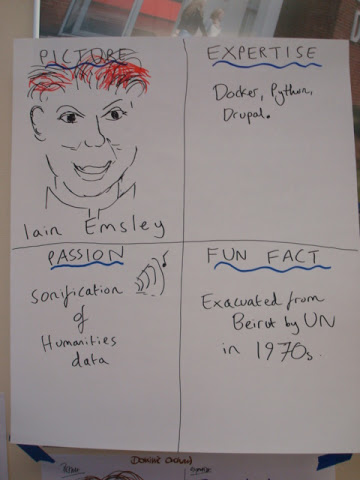 PICTURE
Iain Emsley
EXPERTISE
Docker, Python,
Drupal.
PASSION
Sonification
of
Humanities
data
FUN FACT
Exacuated from
Beirut by UN
in 1970s.